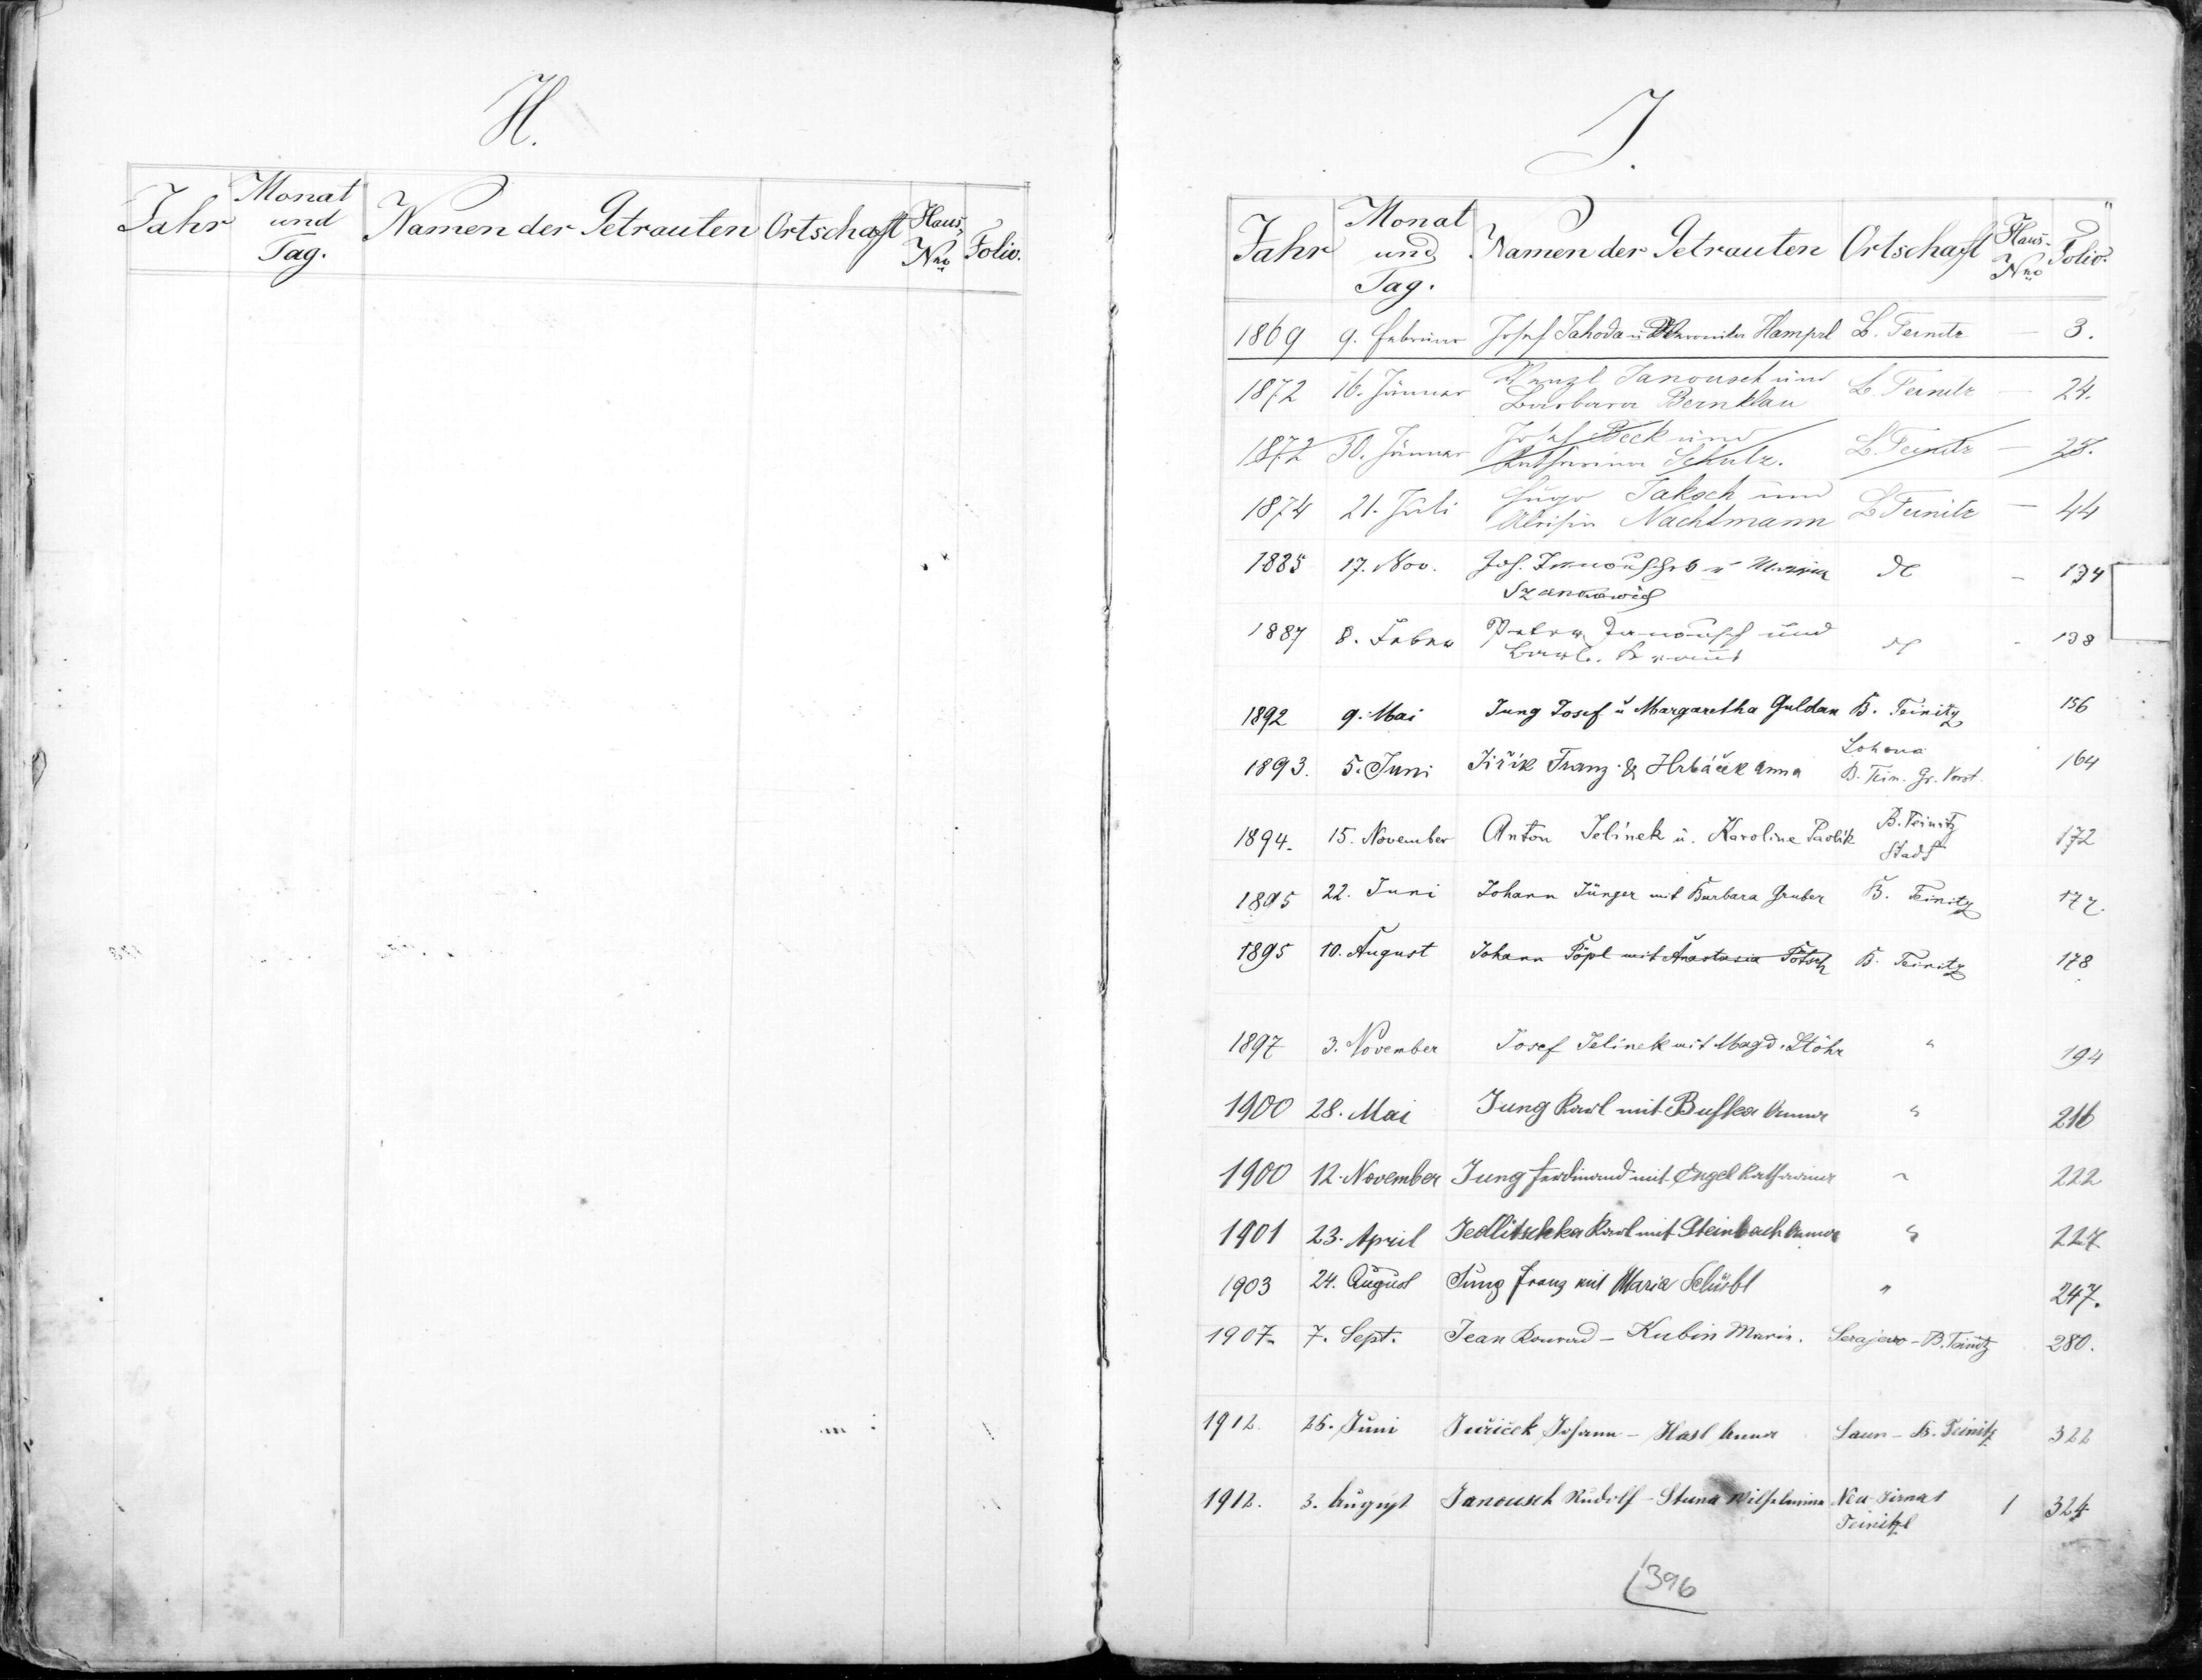 H.
Jahr Monat und Tag. Namen der Getrauten Ortschaft Haus Nro Folio.
J.
Jahr Monat und Tag. Namen der Getrauten Ortschaft Haus-Nro Folio.
1869 9. Februar Josef Jahoda u Hampel B. Teinitz — 3.
1872 16. Jänner Wenzl Janousch und B. Teinitz — 24.
Barbara Bernklau
1872 30. Jänner Josef Beck und B. Teinitz — 25.
Katharina Schulz.
1874 21. Juli Hugo Jaksch und B Teinitz — 44
Aloisia Nachtmann
1885 17. Nov. Jos. u Maria - 134
1887 8. Feber Peter Janousch und - 138
Barb.
1892 9. Mai Jung Josef u Margaretha Guldan B. Teinitz 156
1893. 5. Juni Jiřík Franz & Hrbáček Anna B. Tein. Gr. Vorst. 164
1894. 15. November Anton Jelínek u. Karoline Pavlík B. Teinitz Stadt 172
1895 22. Juni Johann Jünger mit Barbara Gruber B. Teinitz 177.
1895 10. August Johann Töpl mit Anastasia B. Teinitz 178
1897 3. November Josef Jelinek mit Magd. Stöhr " 194
1900 28. Mai Jung Karl mit Anna " 216
1900 12. November Jung Ferdinand mit Engel Katharina " 222
1901 23. April Jedlitschka Karl mit Steinbach Anna " 227
1903 24. August Jung Franz mit Maria " 247.
1907. 7. Sept. Jean Konrad - Kubin Maria. Serajevo - B. Teinitz 280.
1912. 25. Juni Juříček Johann - Hasl Anna Laun - B. Teinitz 322
1912. 3. August Janousch Rudolf - Wilhelmine 1 324
396